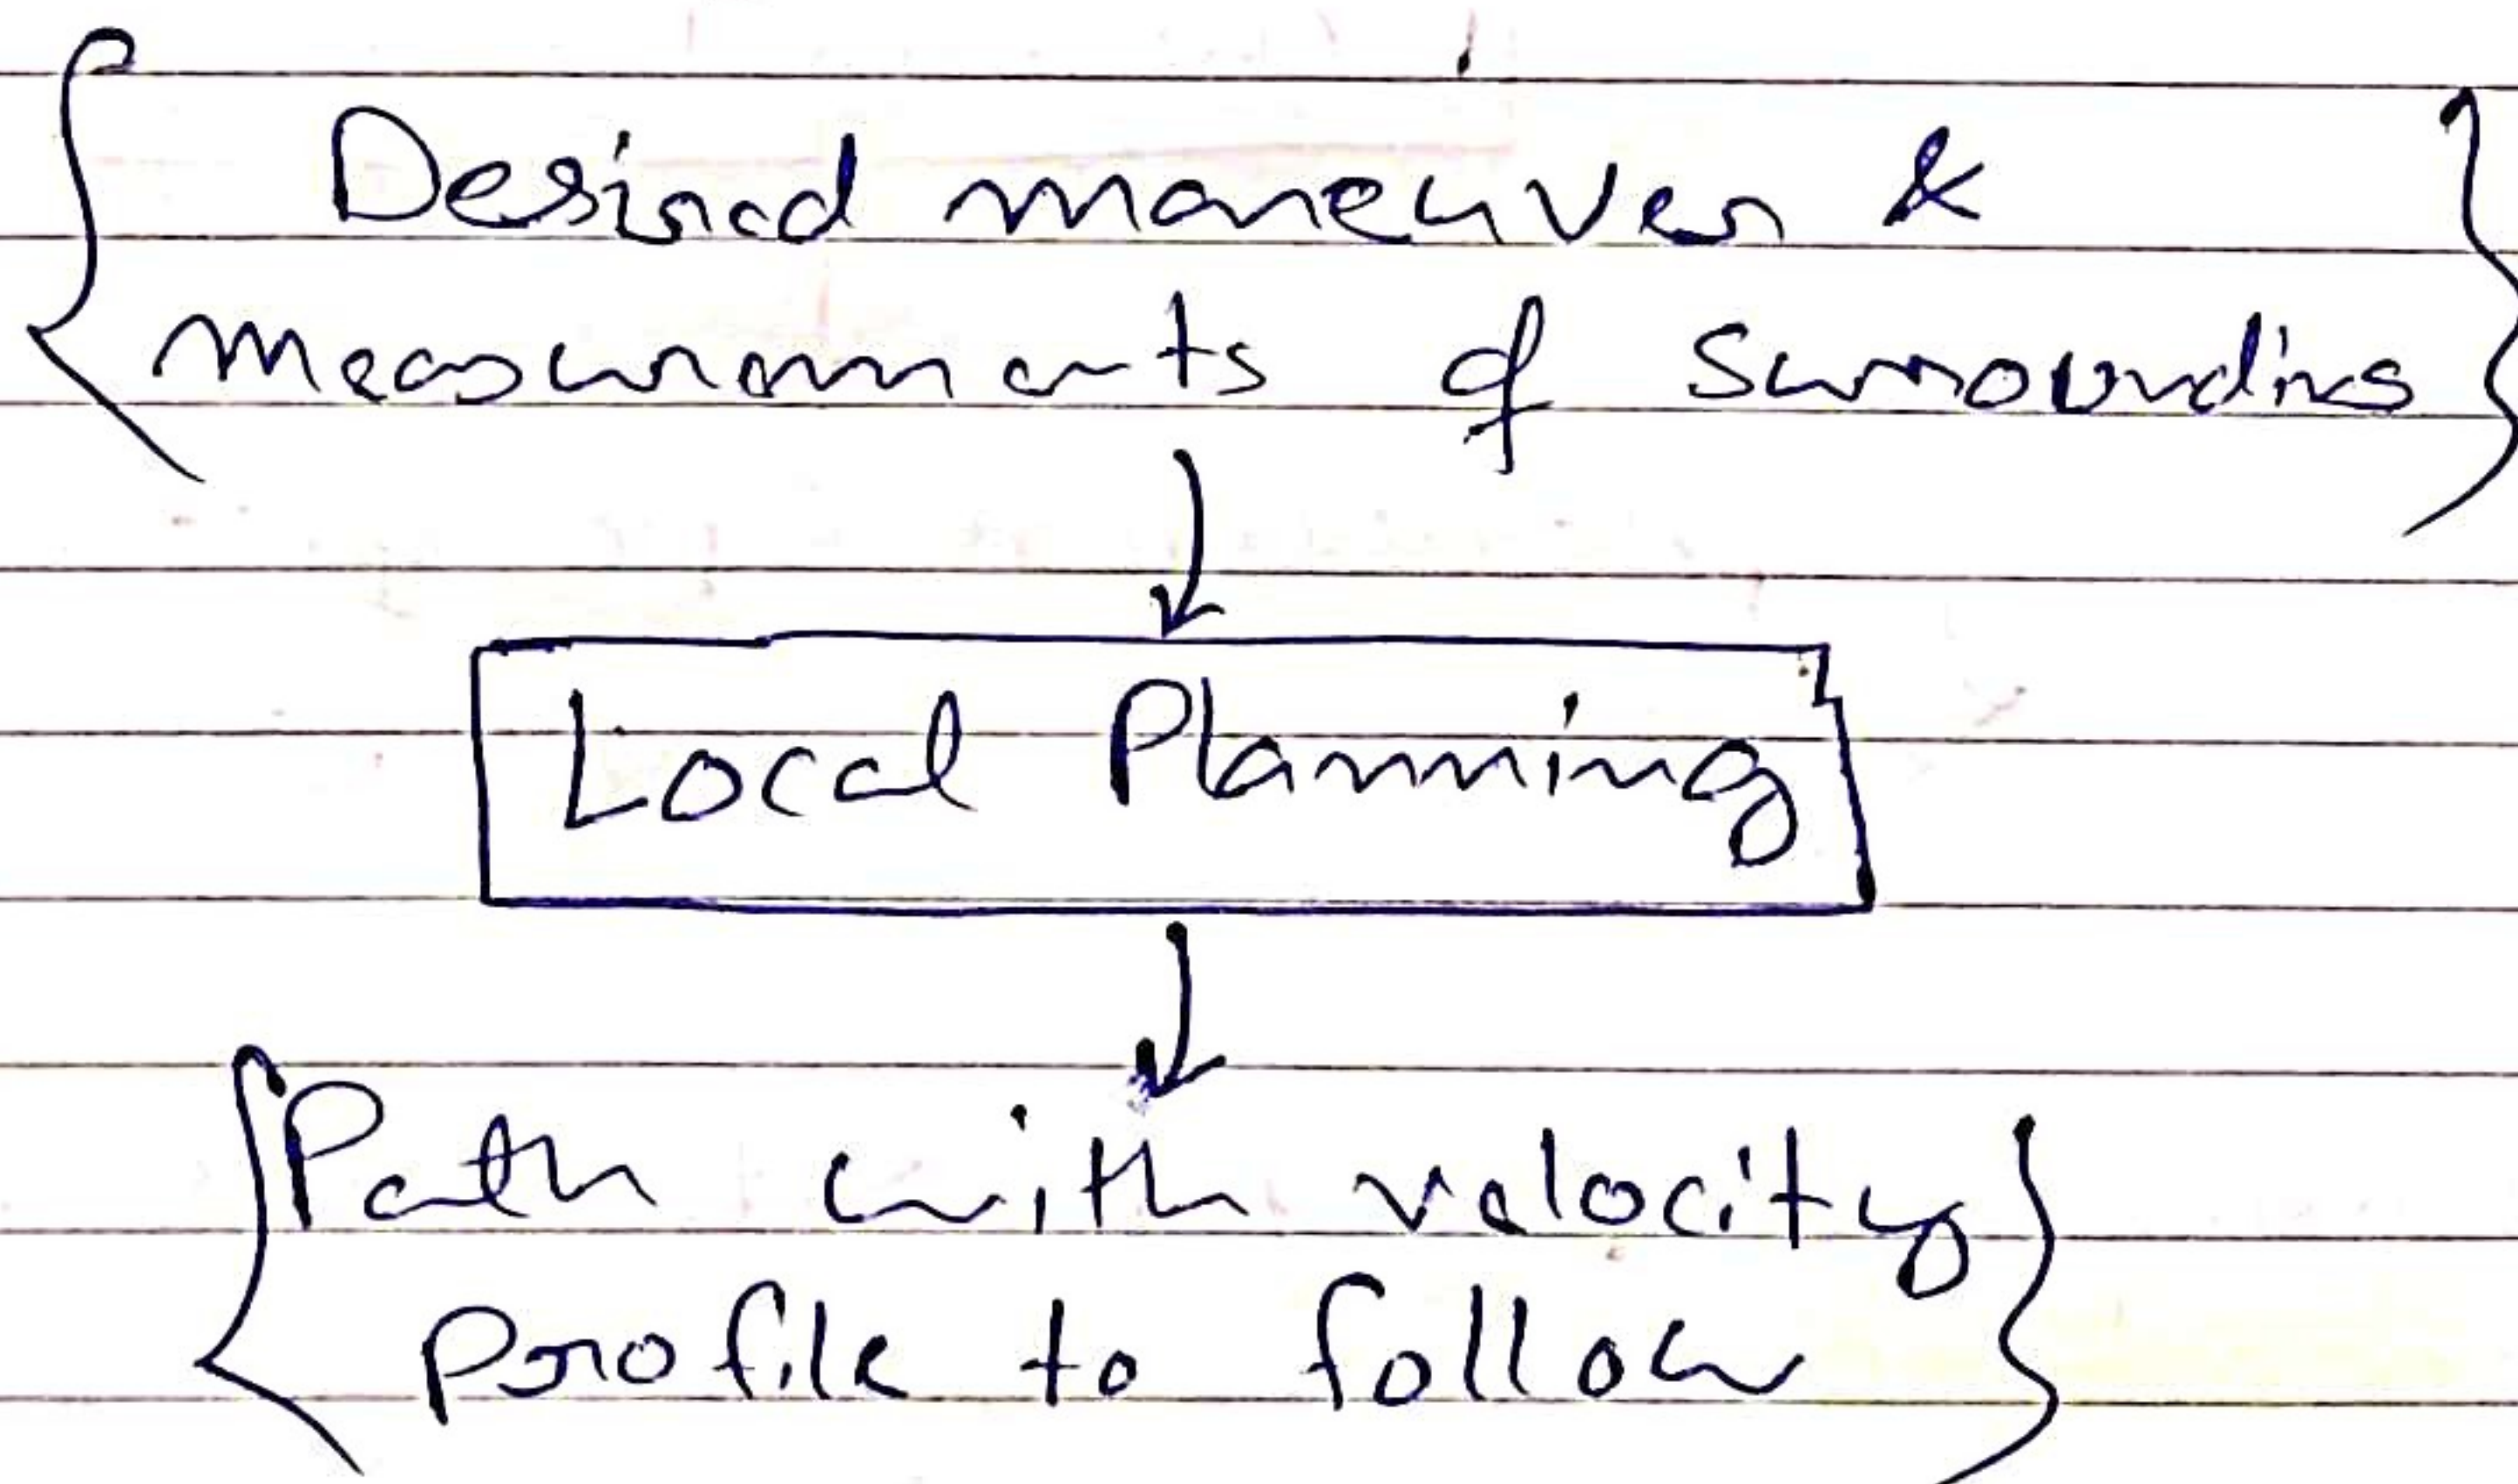 Desired maneuver &
measurements of surroundins
Local Planning
Path with velocity
profile to follow